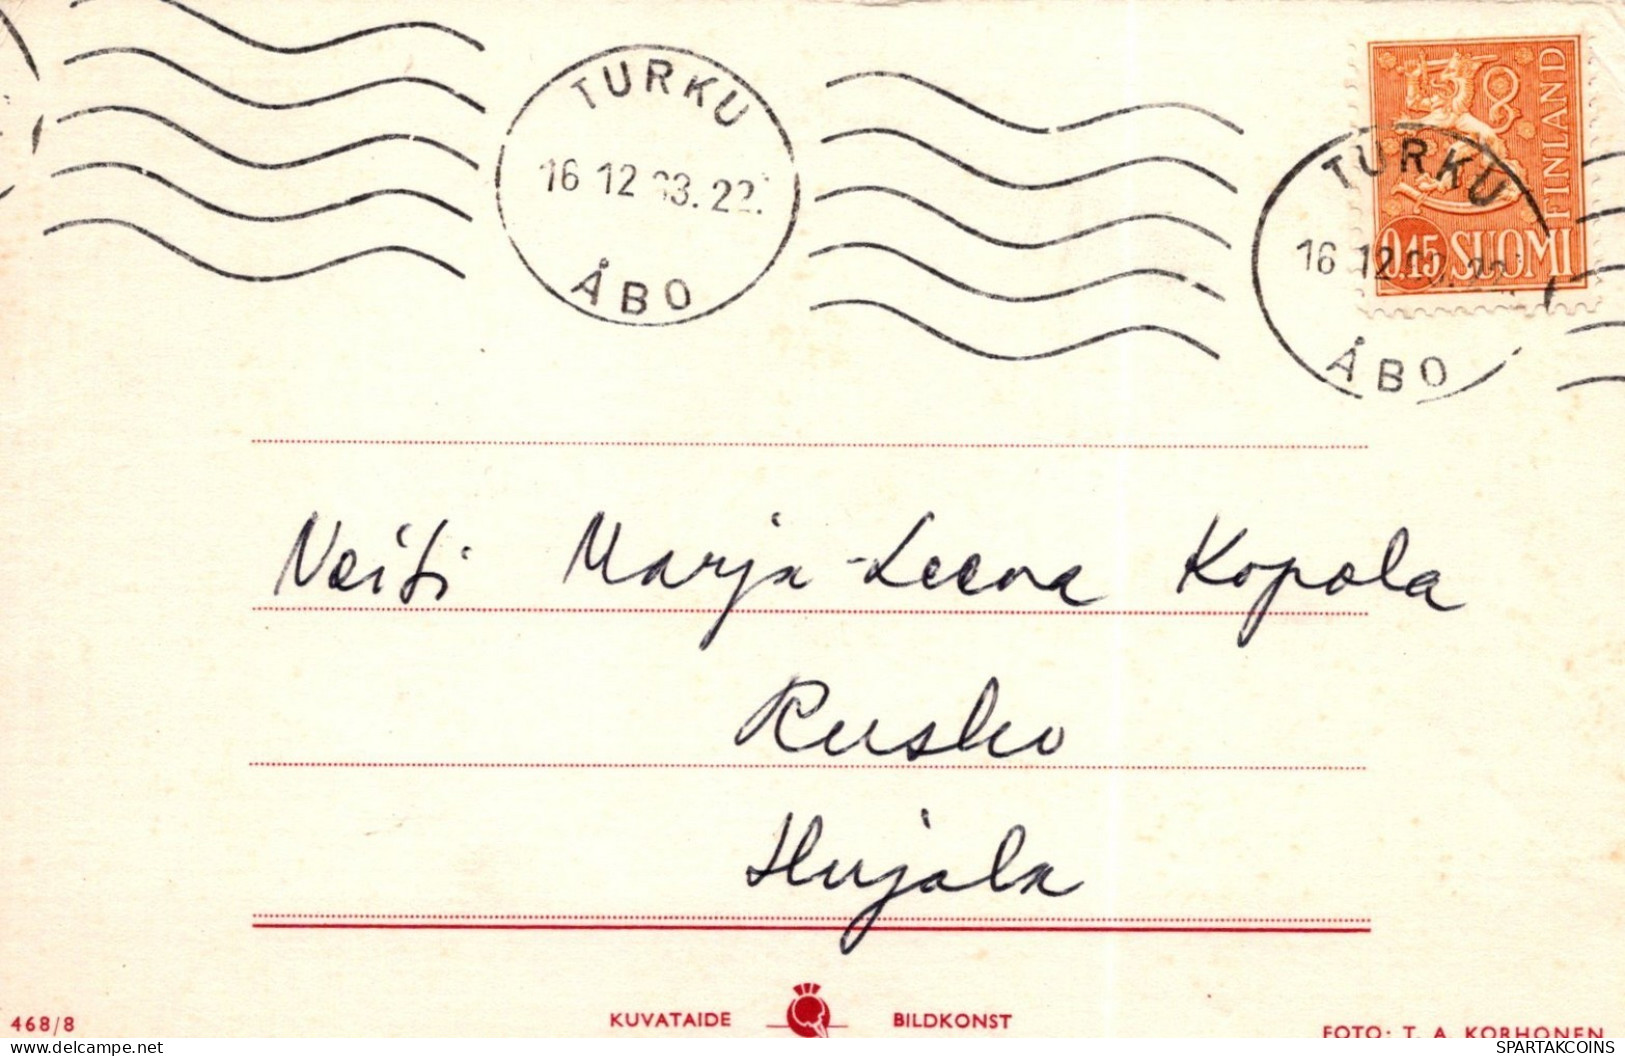 TURKU
16 12 63. 22.
ÅBO
TURKU
16 12
ÅBO
FINLAND
0.15 SUOMI
Neiti Marja-Leena Kopola
Rusko
Hujala
468/8
KUVATAIDE
BILDKONST
FOTO: T. A. KORHONEN
delcampe.net
SPARTAKCOINS